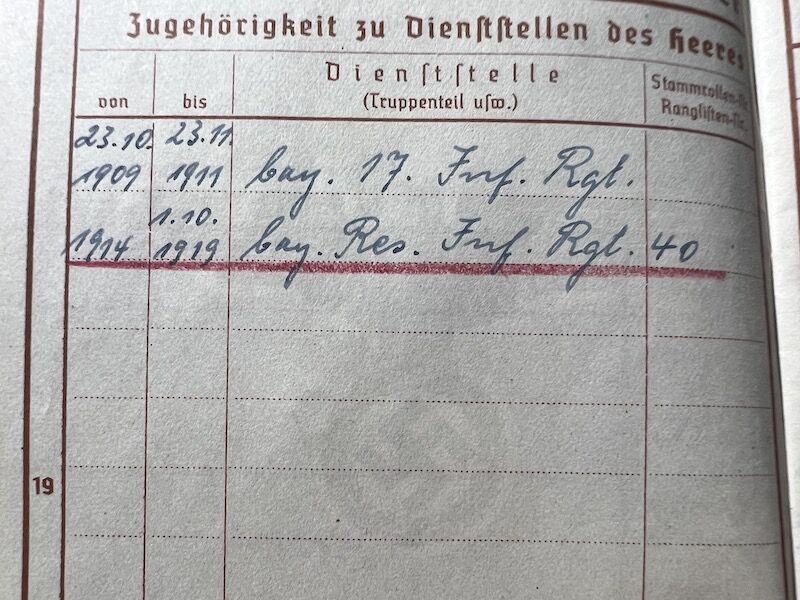 Zugehörigkeit zu Dienststellen des Heeres
von
bis
Dienststelle
(Truppenteil usw.)
Stammrollen-Nr.
Ranglisten-Nr.
23.10. 23.11.
1909 1911 bay. 17. Inf. Rgt.
1.10.
1914 1919 bay. Res. Inf. Rgt. 40
19